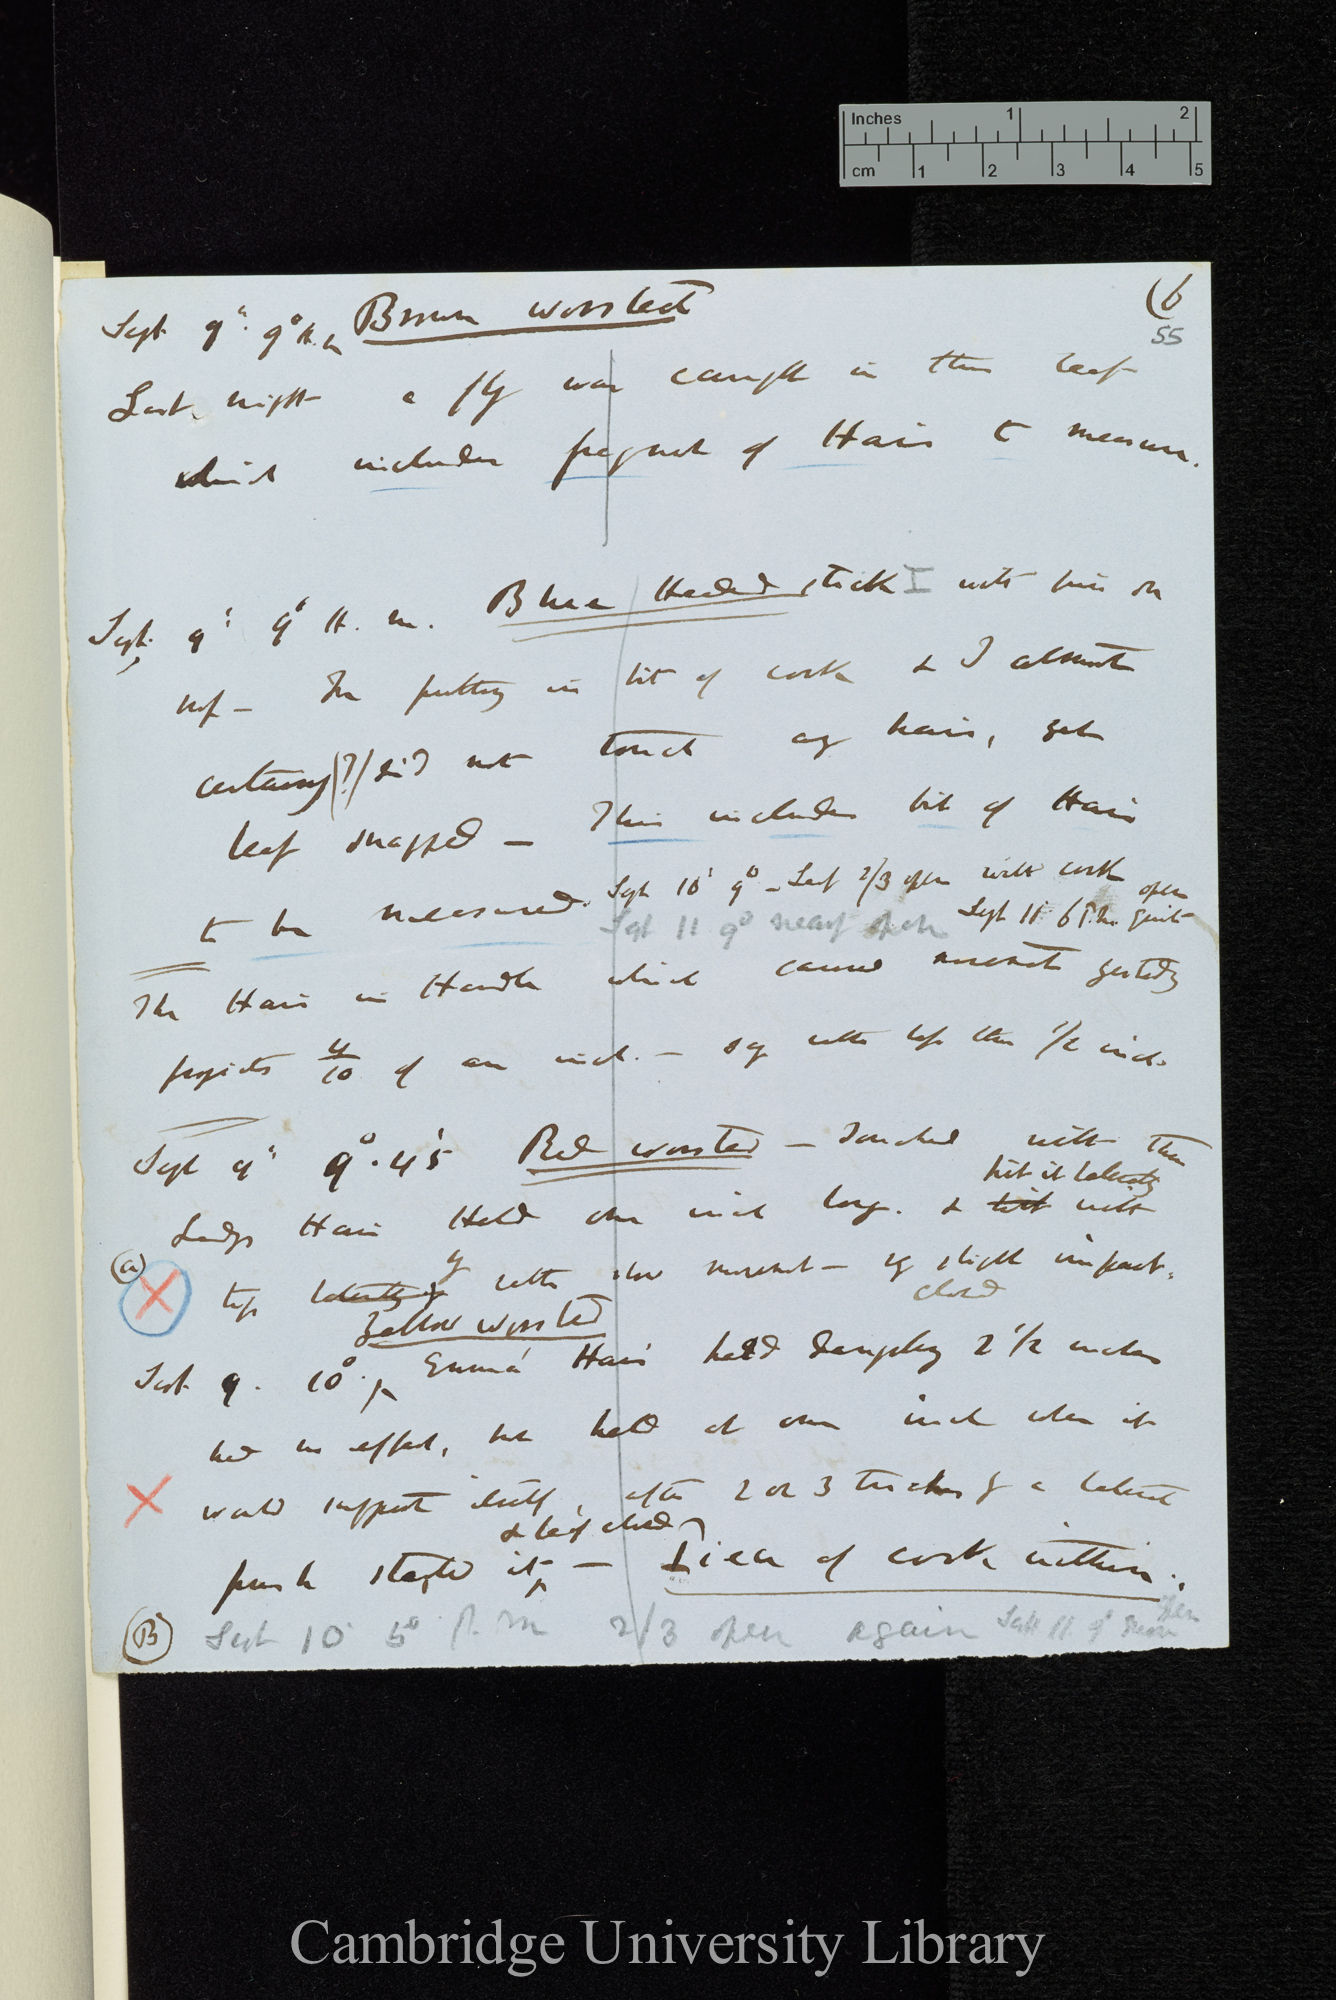 Inches 1 2
cm 1 2 3 4 5
(6
55
Sept 9th. 9° A.m Brown worsted
Last night a fly was caught in this leaf
which includes fragment of Hair to measure.
Sept. 9th 9° A. m. Blue Headed stick I with pin on
top — In putting in bit of cork & I almost
certainly (?) did not touch any hair, yet
leaf snapped — This includes bit of Hair
to be measured. Sept 10th 9° — Leaf 2/3 open with cork
Sept 11 9° nearly open Sept 11 6 P.m. quite open
The Hair in Handle which caused movement yesterday
projects 4/10 of an inch. — say rather less than 1/2 inch.
Sept 9th 9°.45' Red worsted — Touched with the
hit it laterally
Lady's Hair Held one inch long. & hit with
(a) X tip laterally by rather slow movement — by slight impact.
closed
Yellow worsted
Sept 9. 10°. Emma's Hair held dangling 2 1/2 inches
had no effect, but held at one inch when it
X would support itself, after 2 or 3 touches of a lateral
& leaf closed
push started it; — Piece of cork within.
(B) Sept 10 5° P. m 2/3 open again Sept 11. 9° open
Cambridge University Library